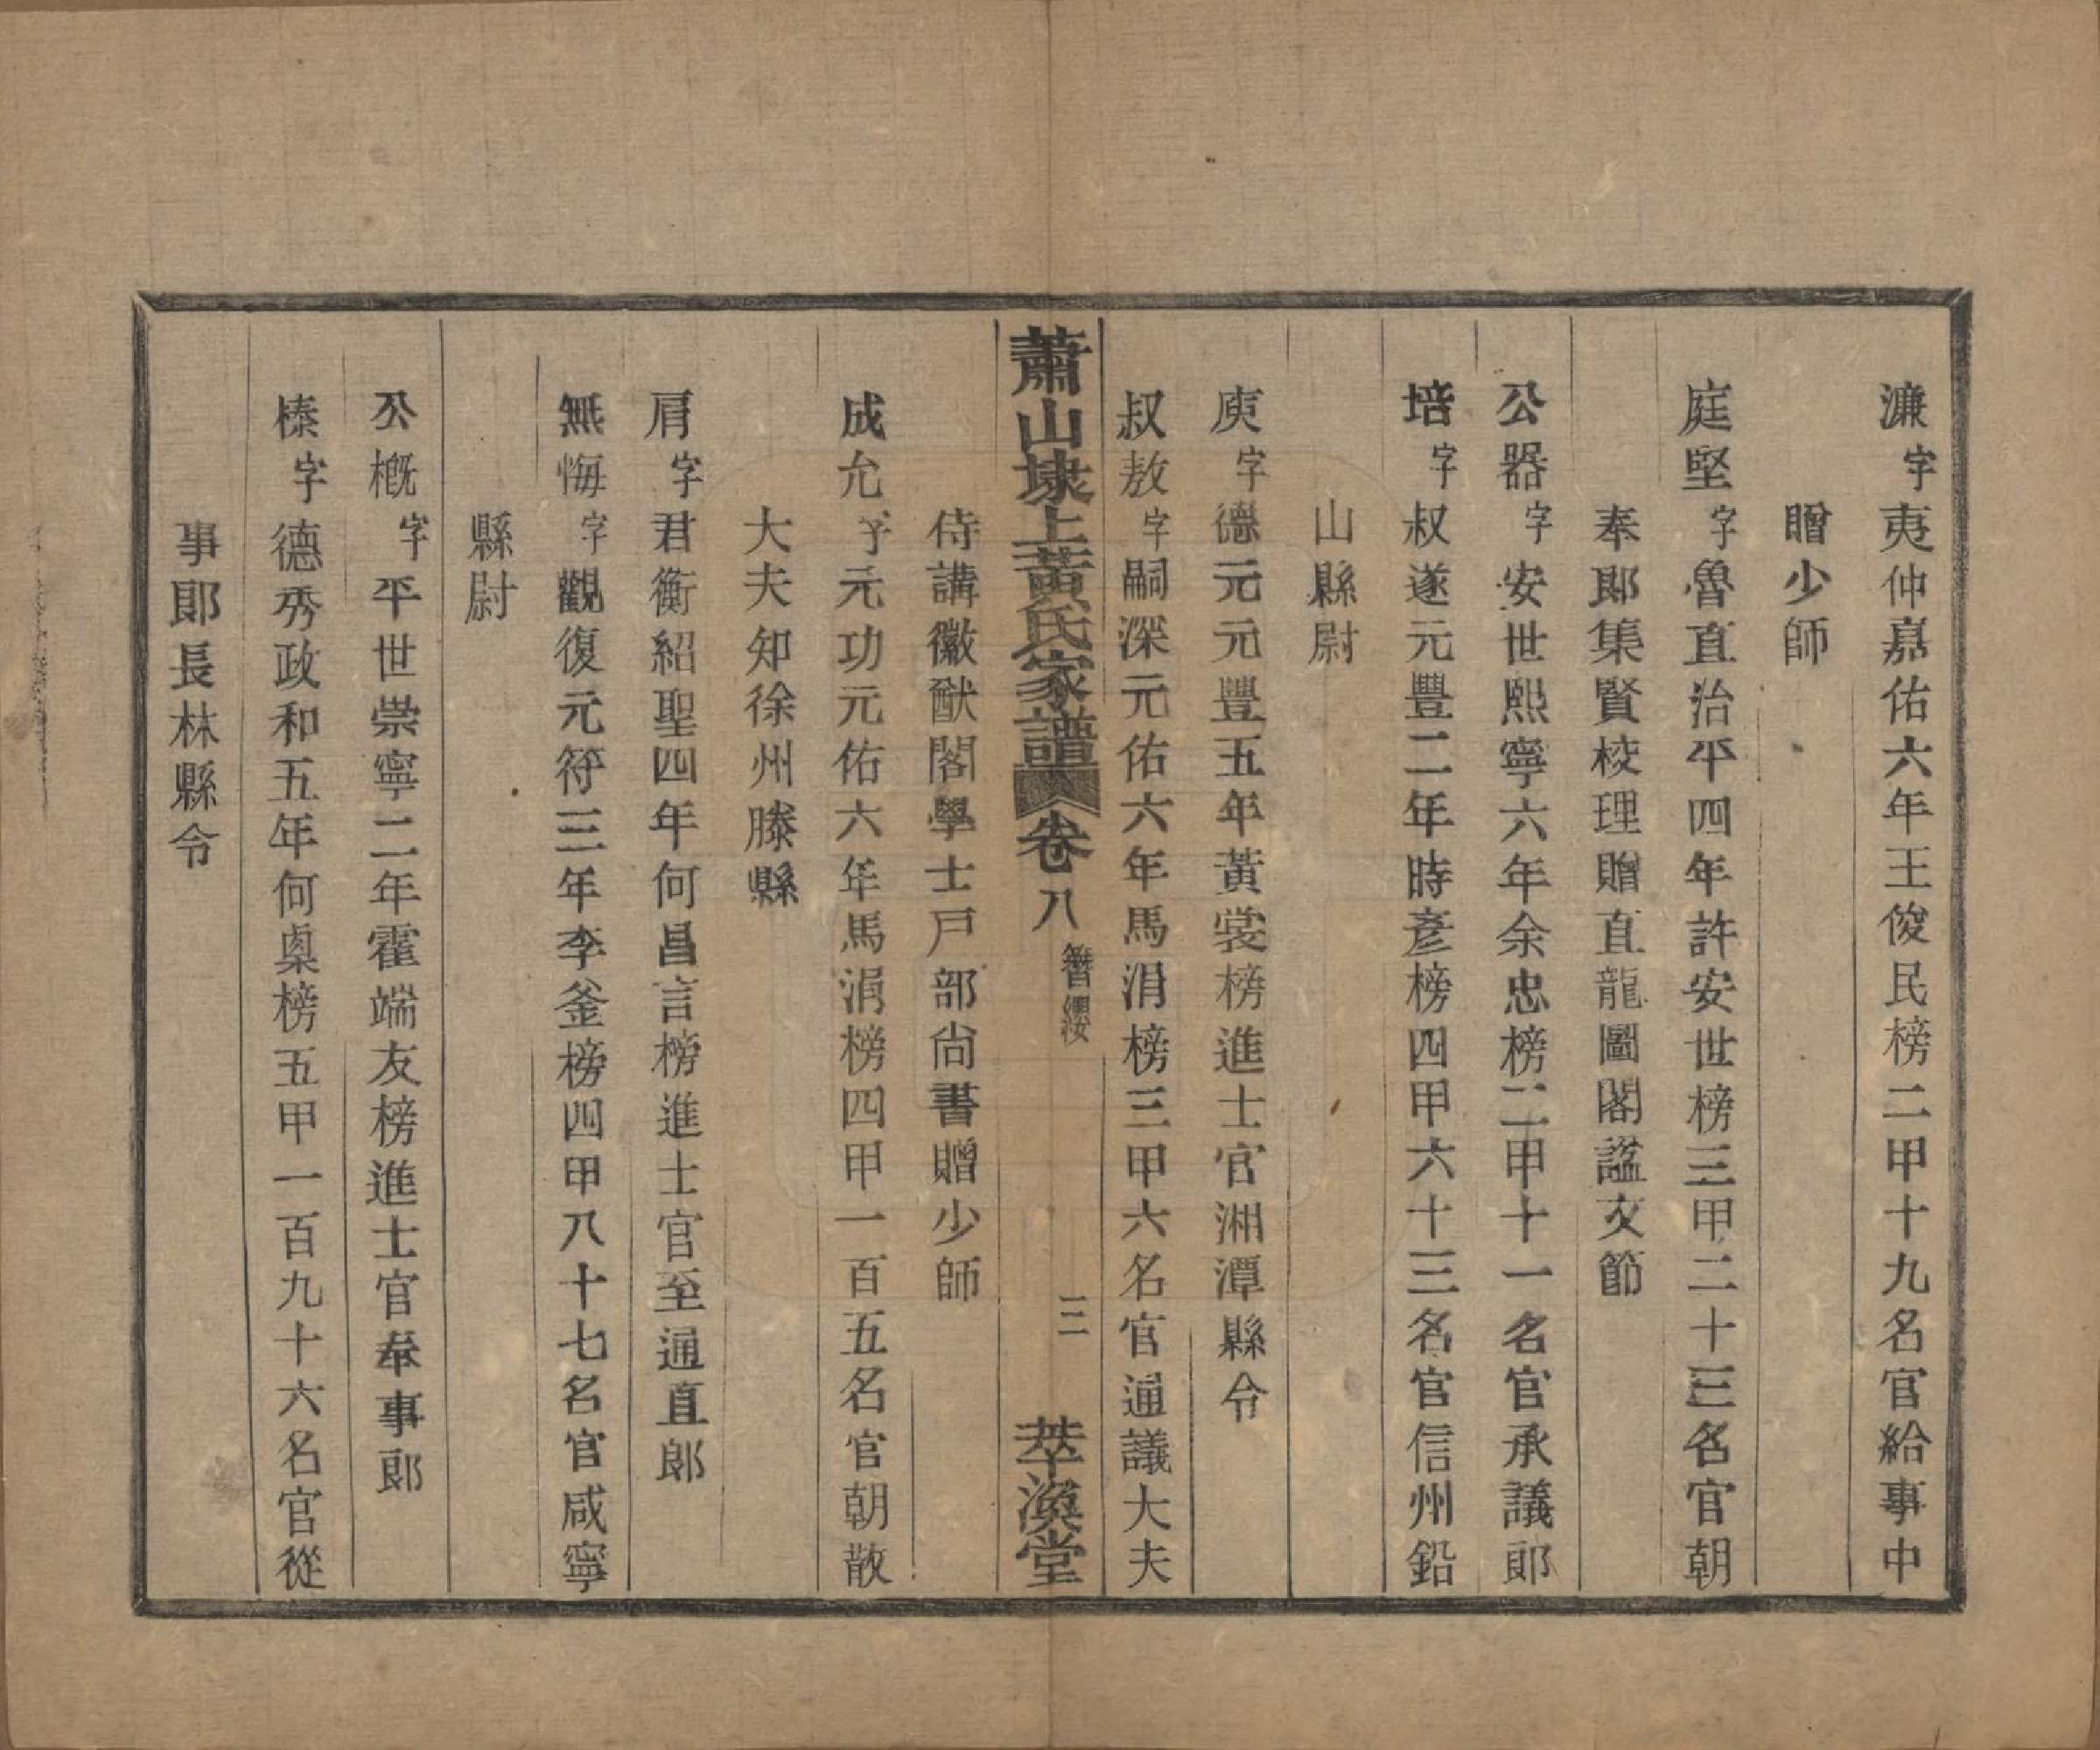 濂字夷仲嘉佑六年王俊民榜二甲十九名官給事中
贈少師
庭堅字魯直治平四年許安世榜三甲二十三名官朝
奉郎集賢校理贈直龍圖閣諡文節
公器字安世熙寧六年余忠榜二甲十一名官承議郎
培字叔遂元豐二年時彥榜四甲六十三名官信州鉛
山縣尉
庾字德元元豐五年黃裳榜進士官湘潭縣令
叔敖字嗣深元佑六年馬涓榜三甲六名官通議大夫
蕭山埭上黃氏家譜 卷八 簪纓 三 萃渙堂
侍講徽猷閣學士戸部尙書贈少師
成允字元功元佑六年馬涓榜四甲一百五名官朝散
大夫知徐州滕縣
肩字君衡紹聖四年何昌言榜進士官至通直郎
無悔字觀復元符三年李釜榜四甲八十七名官咸寧
縣尉
公概字平世崇寧二年霍端友榜進士官奉事郎
榛字德秀政和五年何㮚榜五甲一百九十六名官從
事郎長林縣令